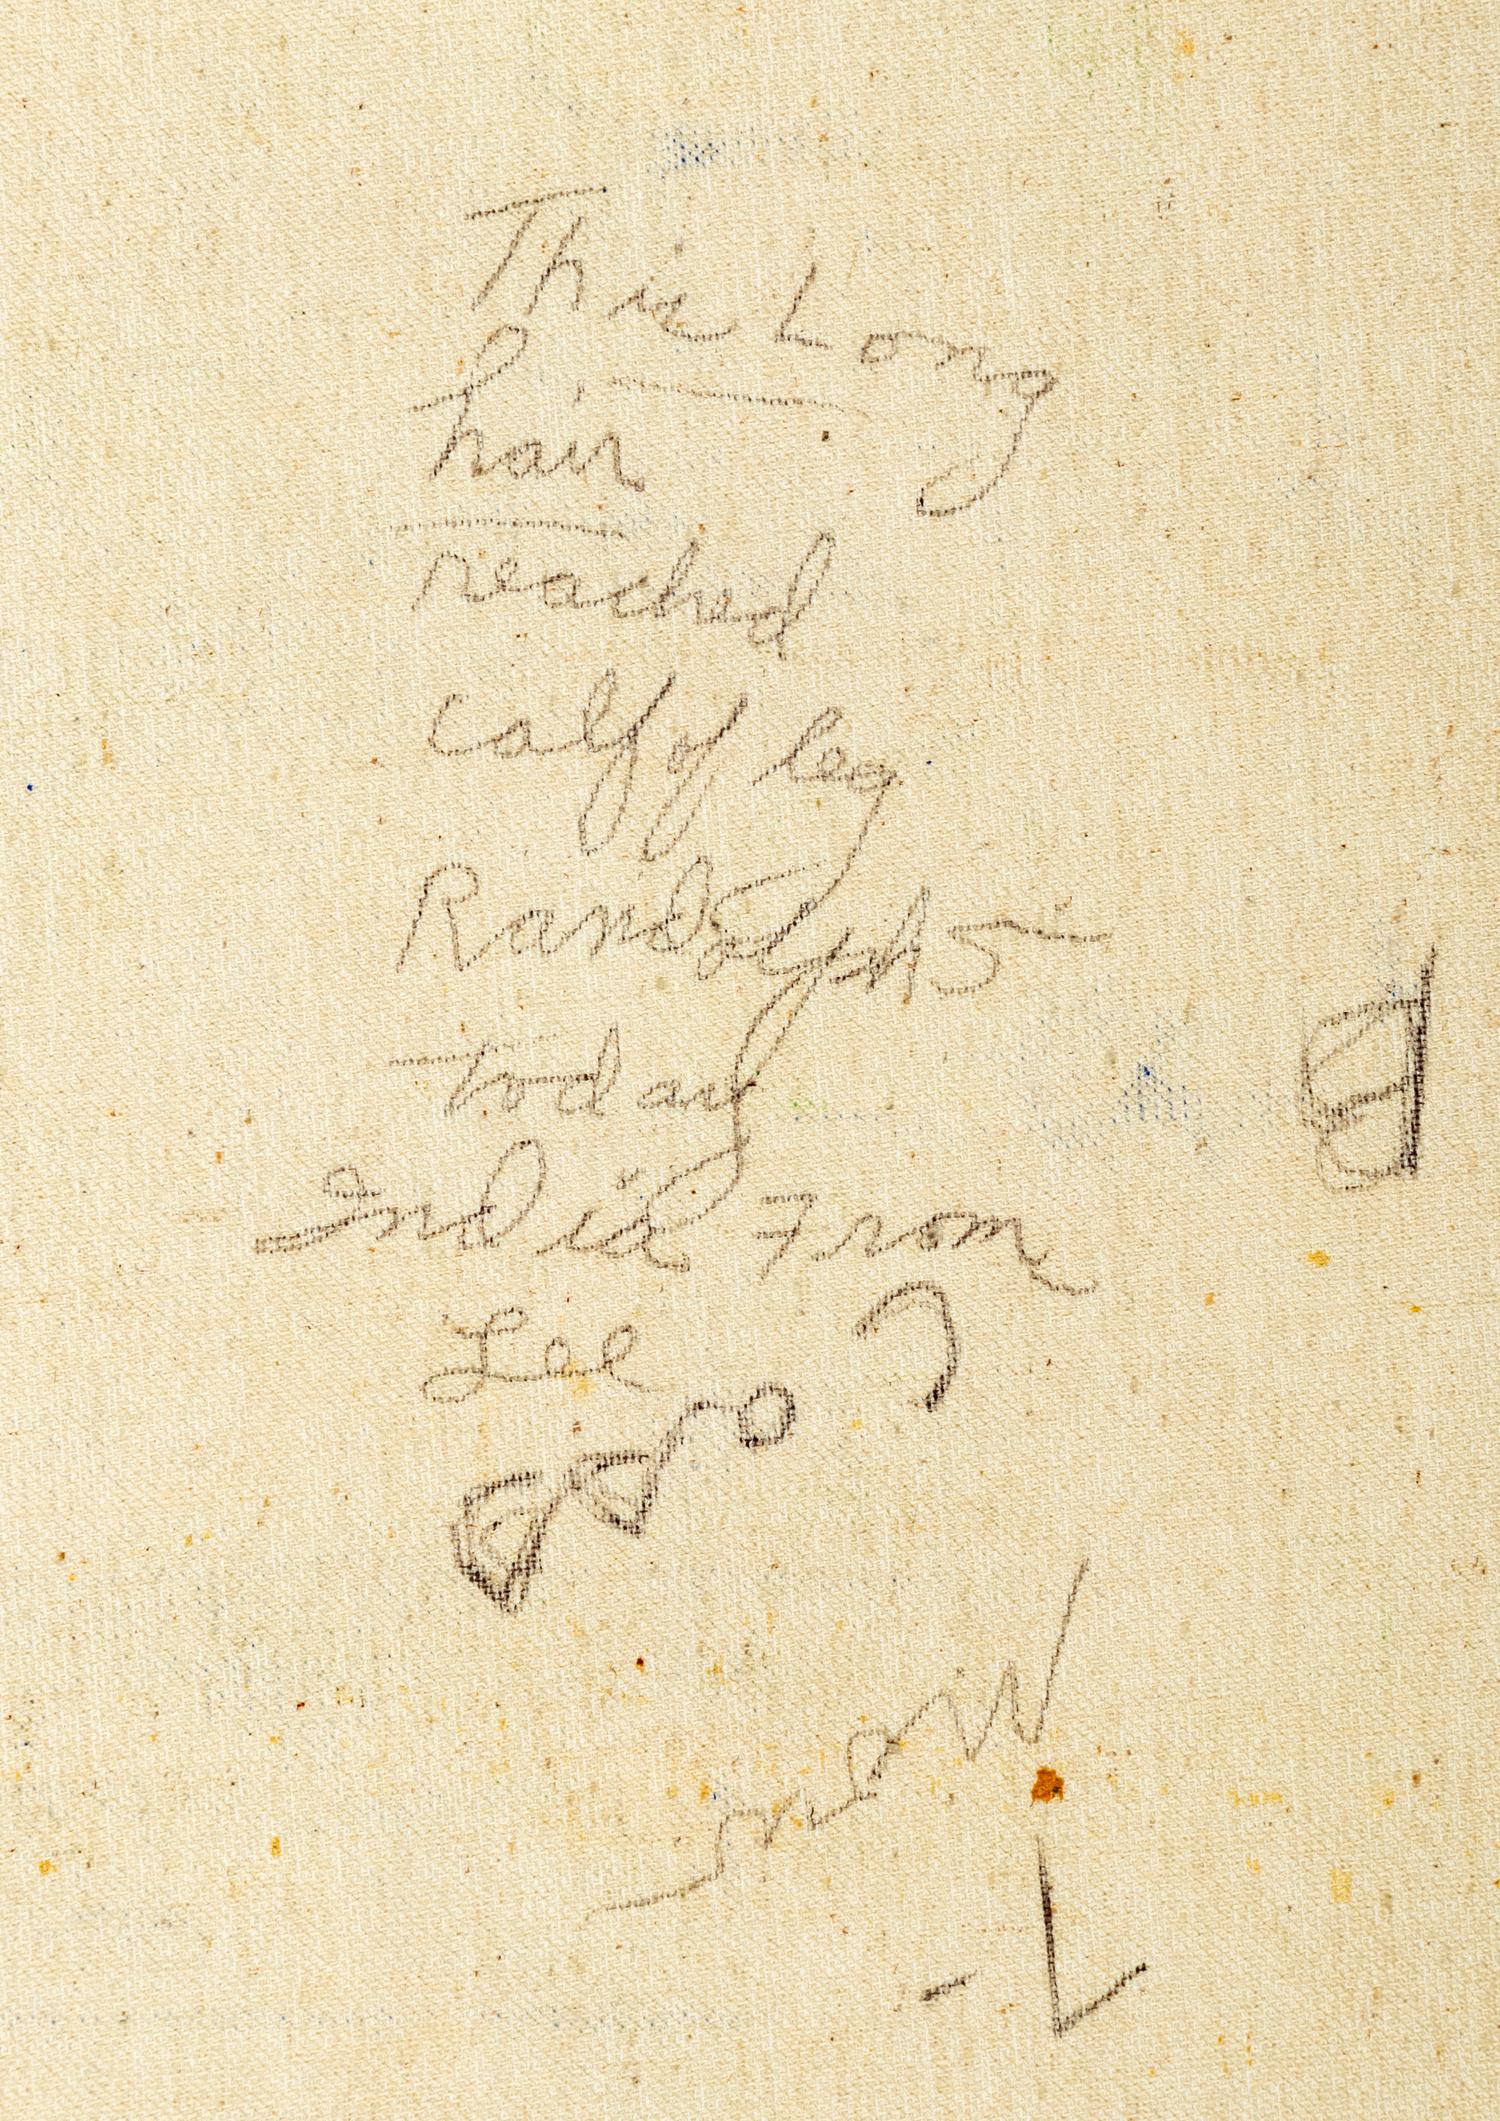 This Long
hair
reached
calf of leg
Randolph's
today
India From
Lee
B
L